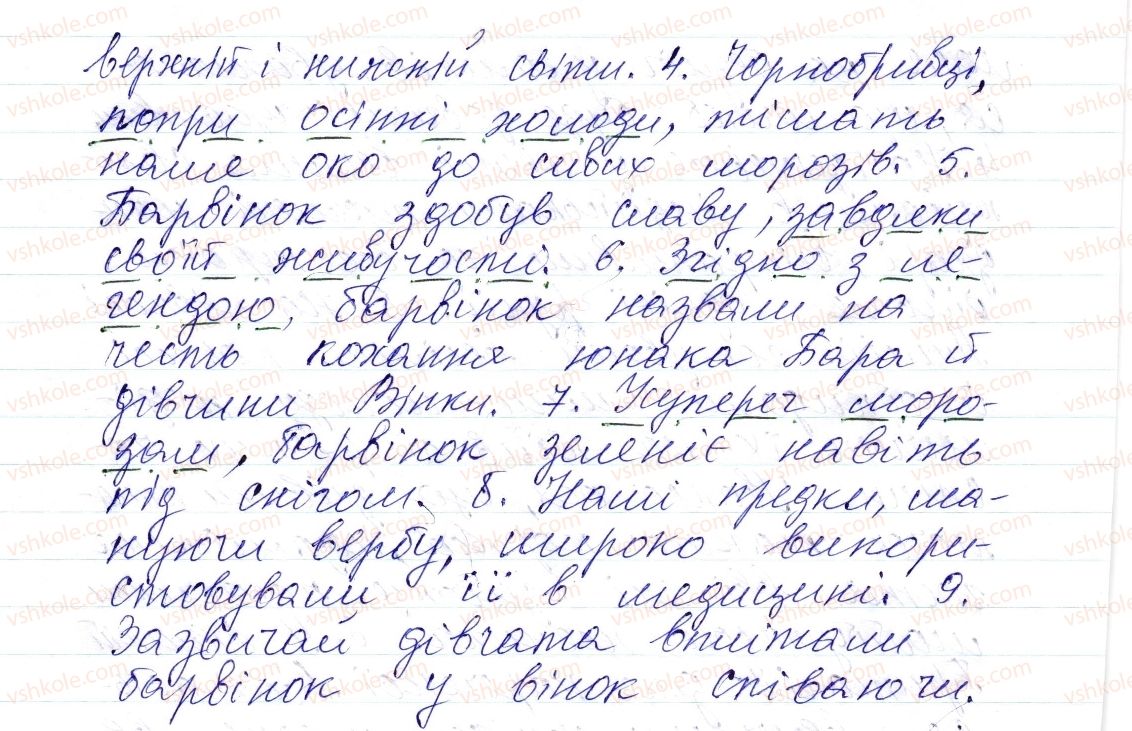 верхній і нижній світи. 4. Чорнобривці,
попри осінні холоди, тішать
наше око до сивих морозів. 5.
Барвінок здобув славу, завдяки
своїй живучости. 6. Згідно з ле-
гендою, барвінок назвали на
честь кохання юнака Бара й
дівчини Вінки. 7. Усупереч моро-
зам, барвінок зеленіє навіть
під снігом. 8. Наші предки, ша-
нуючи вербу, широко викори-
стовували її в медицині. 9.
Зазвичай дівчата вплітали
барвінок у вінок співаючи.